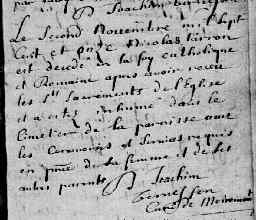 Le Second Novembre mil sept
Cent et onze Nicolas
est decedé en la foy Catholique
et Romaine apres avoir receu
les Sts Sacrements de l'Eglise
et a esté inhumé dans le
Cimetiere de la paroisse avec
les Ceremonies et Services requis
en pnce de sa femme et de ses
autres parents
Joachim
Curé de